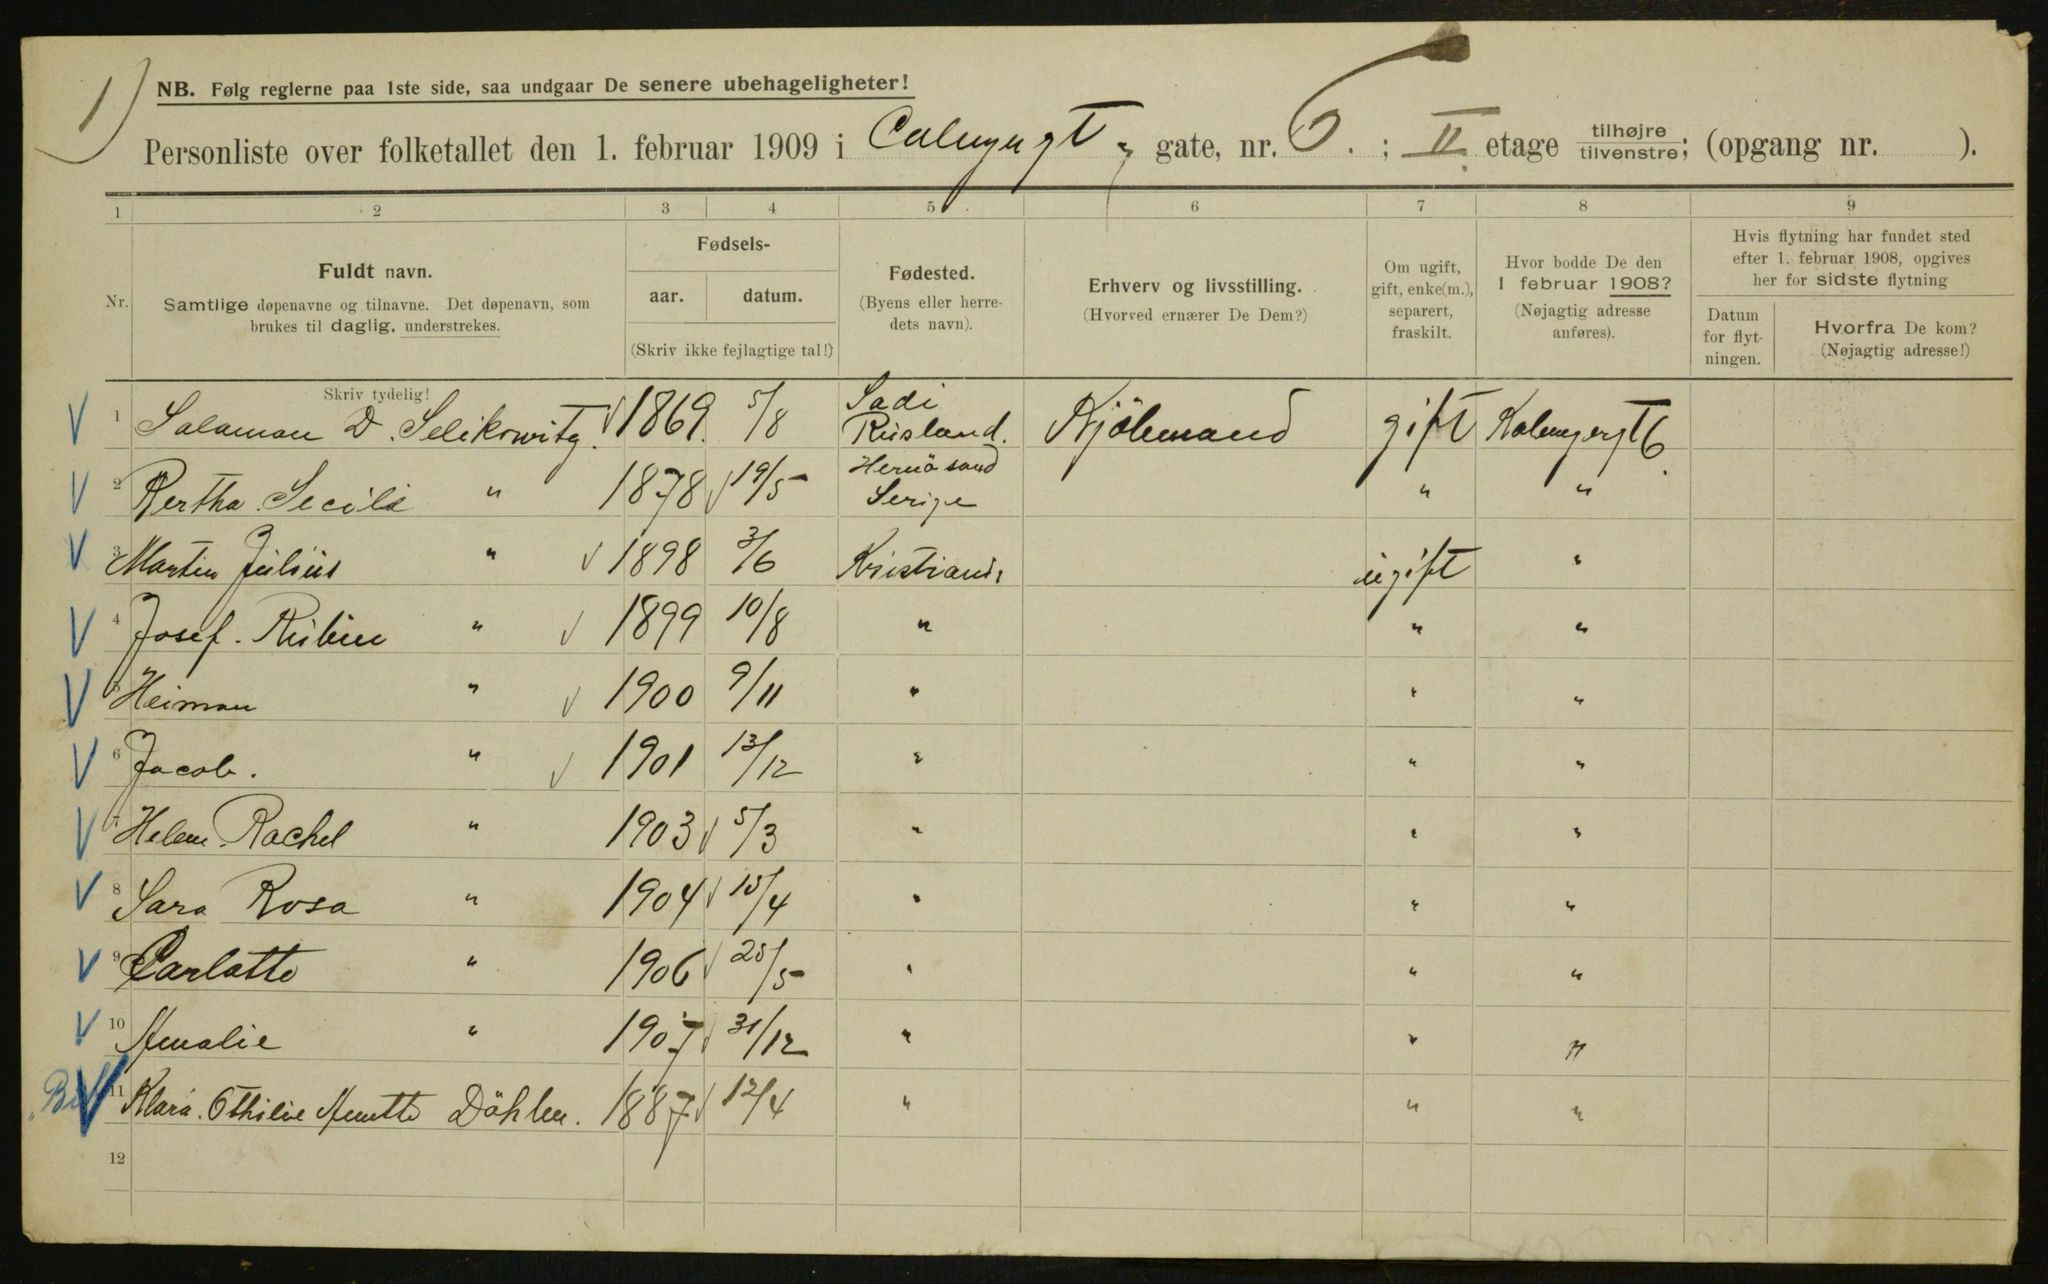 1)
NB. Følg reglerne paa 1ste side, saa undgaar De senere ubehageligheter!
Personliste over folketallet den 1. februar 1909 i Calmeyergt gate, nr. 6. ; II. etage tilhøjre tilvenstre; (opgang nr. ).
1 2 3 4 5 6 7 8 9
Nr.
Fuldt navn.
Samtlige døpenavne og tilnavne. Det døpenavn, som
brukes til daglig, understrekes.
Fødsels-
aar. datum.
(Skriv ikke fejlagtige tal!)
Fødested.
(Byens eller herre-
dets navn).
Erhverv og livsstilling.
(Hvorved ernærer De Dem?)
Om ugift,
gift, enke(m.),
separert,
fraskilt.
Hvor bodde De den
1 februar 1908?
(Nøjagtig adresse
anføres).
Hvis flytning har fundet sted
efter 1. februar 1908, opgives
her for sidste flytning
Datum
for flyt-
ningen.
Hvorfra De kom?
(Nøjagtig adresse!)
Skriv tydelig!
1 Salaman D. Selikowitz. 1869. 5/8 Sadi Rusland. Kjöbmand gift Kalmeyergt 6.
2 Bertha Secilie " 1878 19/5 Hernösand Serige " "
3 Martin Julius " 1898 3/6 Kristiania ugift "
4 Josef. Rubin " 1899 10/8 " " "
5 Heiman " 1900 9/11 " " "
6 Jacob. " 1901 13/12 " " "
7 Helene Rachel " 1903 5/3 " " "
8 Sara Rosa " 1904 15/4 " " "
9 Carlotte " 1906 25/5 " " "
10 Amalie " 1907 31/12 " " "
11 Klara. Othilie Anette Döhlen. 1887 12/4 " " "
12